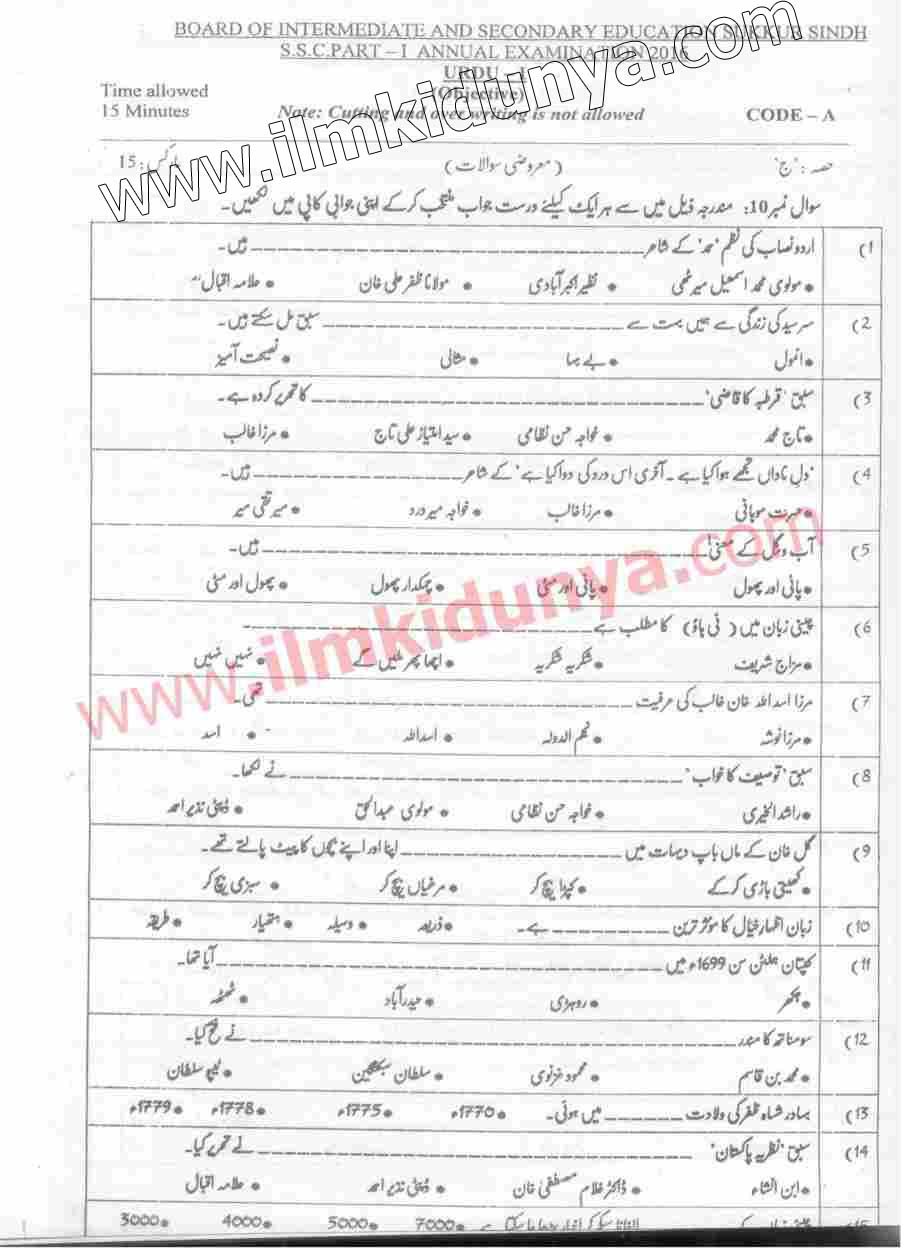 BOARD OF INTERMEDIATE AND SECONDARY EDUCATION SUKKUR SINDH
S.S.C.PART – I ANNUAL EXAMINATION 2016
URDU – I
(Objective)
Time allowed
15 Minutes
Note: Cutting and over writing is not allowed
CODE – A
www.ilmkidunya.com
حصہ: 'ج' (معروضی سوالات) مارکس: 15
سوال نمبر10: مندرجہ ذیل میں سے ہر ایک کیلئے درست جواب منتخب کر کے اپنی جوابی کاپی میں لکھیں۔
(1 اردو نصاب کی نظم 'حمد' کے شاعر ______ ہیں۔
• مولوی محمد اسمعیل میرٹھی • نظیر اکبر آبادی • مولانا ظفر علی خان • علامہ اقبالؒ
(2 سرسید کی زندگی سے ہمیں بہت سے ______ سبق مل سکتے ہیں۔
• انمول • بے بہا • مثالی • نصیحت آمیز
(3 سبق 'قرطبہ کا قاضی' ______ کا تحریر کردہ ہے۔
• تاج محمد • خواجہ حسن نظامی • سید امتیاز علی تاج • مرزا غالب
(4 'دلِ ناداں تجھے ہوا کیا ہے ۔ آخری اس درد کی دوا کیا ہے' کے شاعر ______ ہیں۔
• حسرت موہانی • مرزا غالب • خواجہ میر درد • میر تقی میر
(5 آب و گل کے معنی' ______ ہیں۔
• پانی اور پھول • پانی اور مٹی • چمکدار پھول • پھول اور مٹی
www.ilmkidunya.com
(6 چینی زبان میں (نی ہاؤ) کا مطلب ہے ______
• مزاج شریف • شکریہ شکریہ • اچھا پھر ملیں گے • نہیں نہیں
(7 مرزا اسد اللہ خان غالب کی عرفیت ______ تھی۔
• مرزا نوشہ • نجم الدولہ • اسد اللہ • اسد
(8 سبق 'توصیف کا خواب' ______ نے لکھا۔
• راشد الخیری • خواجہ حسن نظامی • مولوی عبدالحق • ڈپٹی نذیر احمد
(9 گل خان کے ماں باپ دیہات میں ______ اپنا اور اپنے بچوں کا پیٹ پالتے تھے۔
• کھیتی باڑی کر کے • کپڑا بیچ کر • مرغیاں بیچ کر • سبزی بیچ کر
(10 زبان اظہارِ خیال کا موثر ترین ______ ہے۔ • ذریعہ • وسیلہ • ہتھیار • طریقہ
(11 کپتان ہملٹن سن 1699ء میں ______ آیا تھا۔
• بکھر • روہڑی • حیدرآباد • ٹھٹھہ
(12 سومناتھ کا مندر ______ نے فتح کیا۔
• محمد بن قاسم • محمود غزنوی • سلطان سبکتگین • ٹیپو سلطان
(13 بہادر شاہ ظفر کی ولادت ______ میں ہوئی۔ • 1770ء • 1775ء • 1778ء • 1779ء
(14 سبق 'نظریہ پاکستان' ______ نے تحریر کیا۔
• ابن انشاء • ڈاکٹر غلام مصطفیٰ خان • ڈپٹی نذیر احمد • علامہ اقبال
(15 چینی زبان کے ______ الفاظ سیکھ کر اخبار پڑھا جا سکتا ہے • 7000 • 5000 • 4000 • 3000